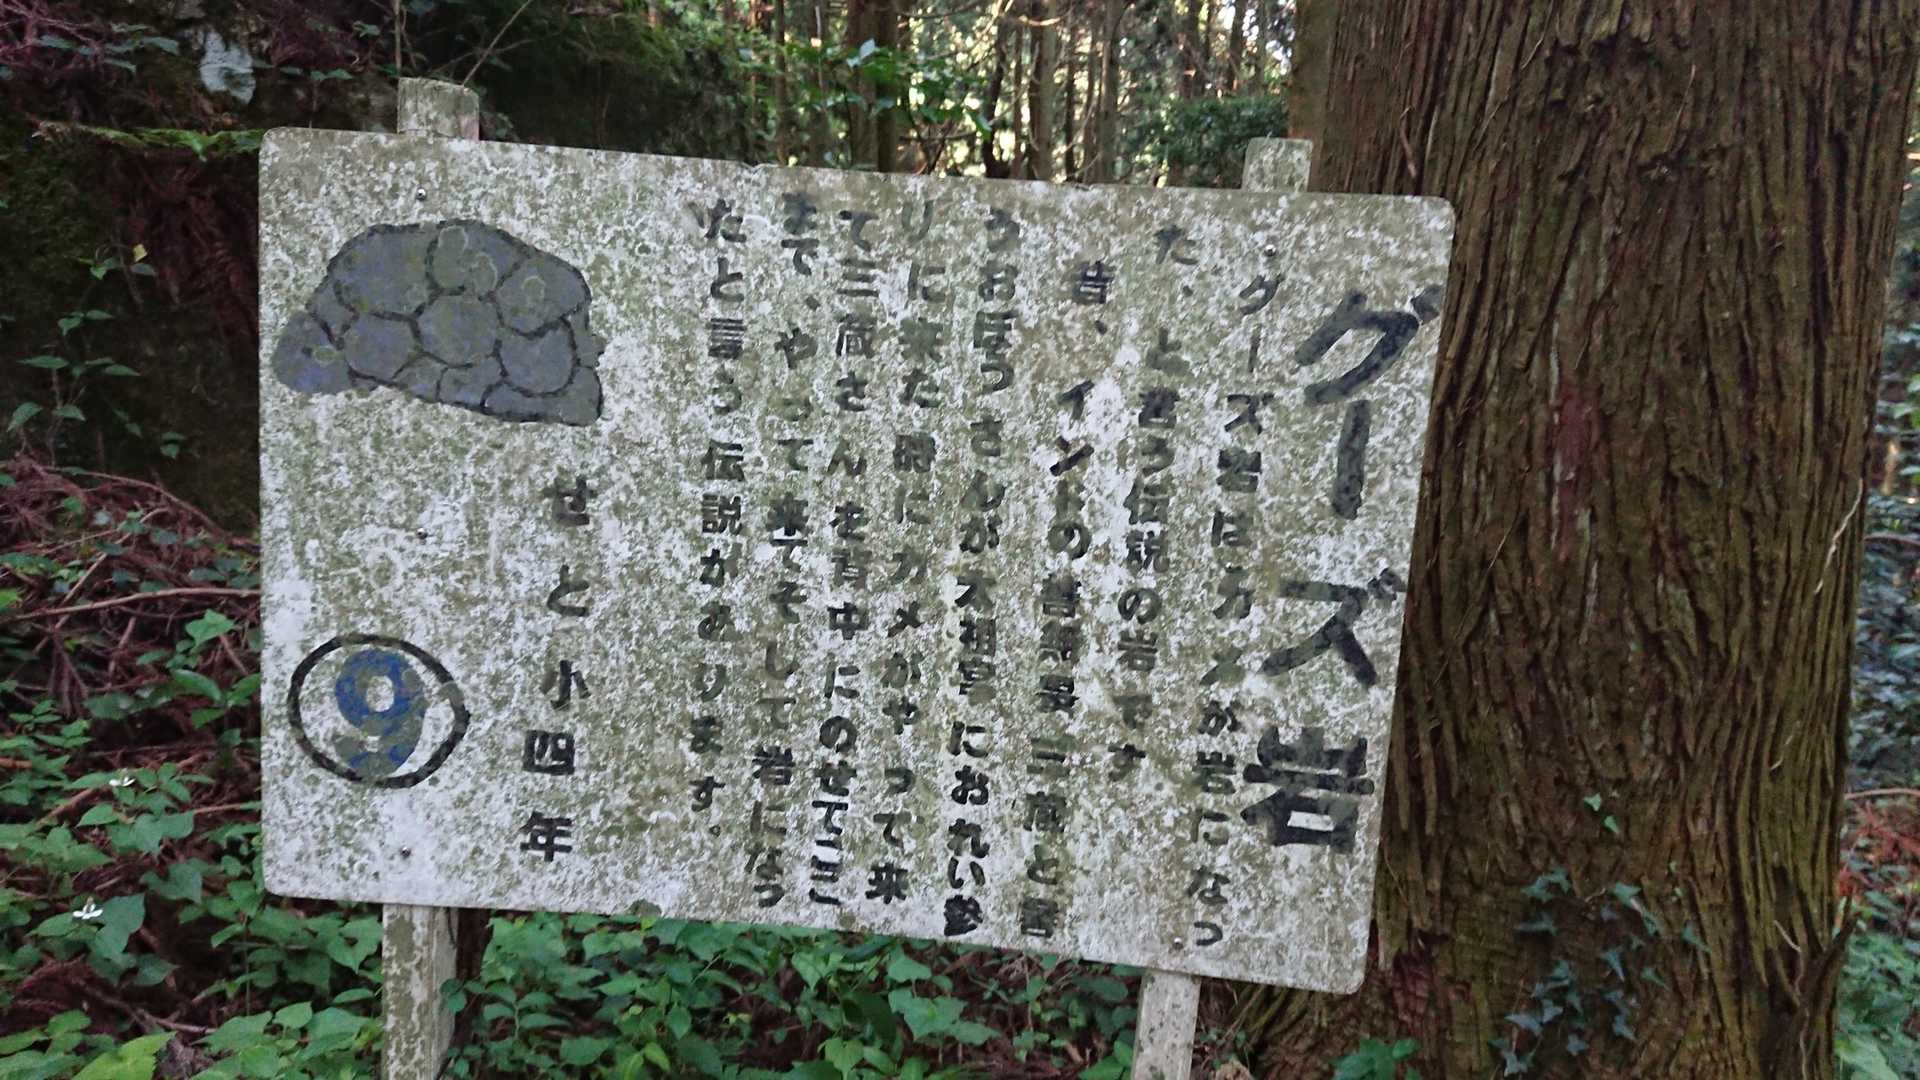 グーズ岩
グーズ岩はカメが岩になっ
た、と言う伝説の岩です
昔、インドの善無畏三蔵と言
うおぼうさんが太祖宮におれい参
りに来た時にカメがやって来
て三蔵さんを背中にのせてここ
まで、やって来てそして岩になっ
たと言う伝説があります。
せと小四年